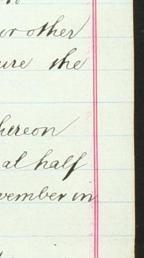 or other
ure the
hereon
al half
vember in